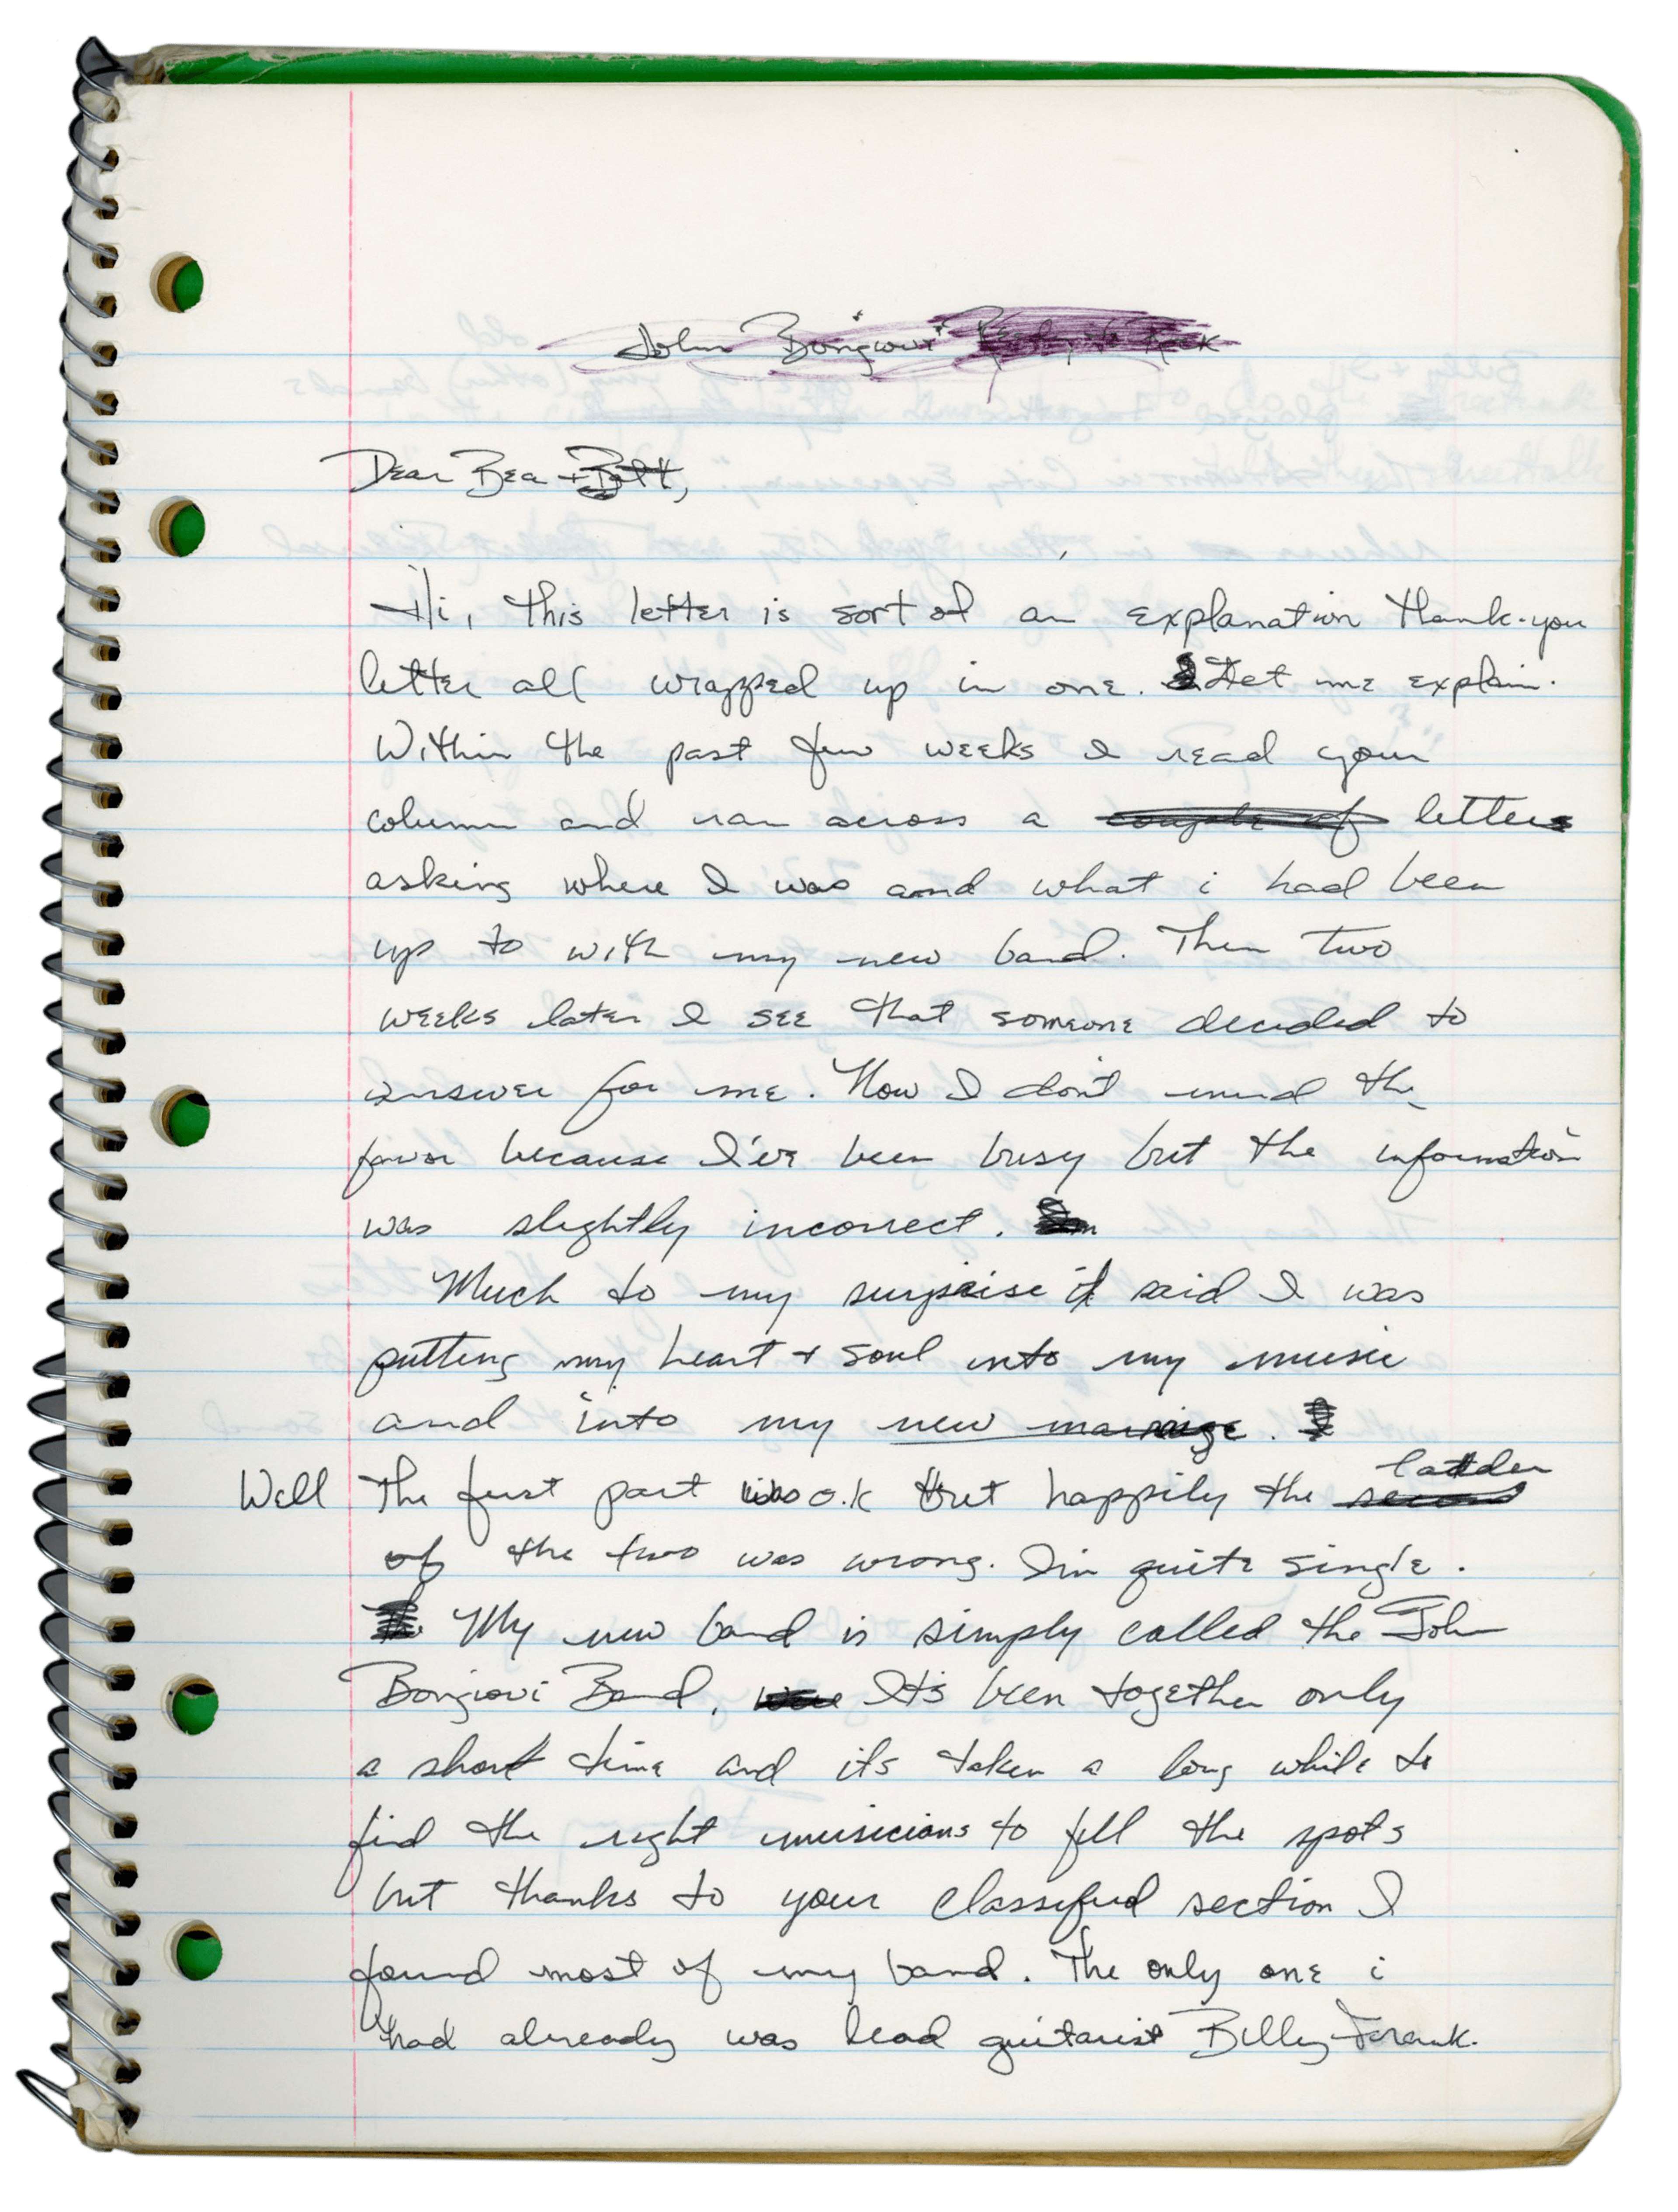 John Bongiovi Ready to Rock
Dear Bea +
Hi, this letter is sort of an explanation thank-you
letter all wrapped up in one. Let me explain.
Within the past few weeks I read your
column and ran across a couple of letters
asking where I was and what i had been
up to with my new band. Then two
weeks later I see that someone decided to
answer for me. Now I don't mind the
favor because I've been busy but the information
was slightly incorrect.
Much to my surprise it said I was
putting my heart + soul into my music
and into my new marriage. I
ladder
Well The first part was o.k but happily the second
of the two was wrong. I'm quite single.
My new band is simply called the John
Bongiovi Band. It's been together only
a short time and its taken a long while to
find the right musicians to fill the spots
but thanks to your classified section I
found most of my band. The only one i
had already was lead guitarist Billy Frank.